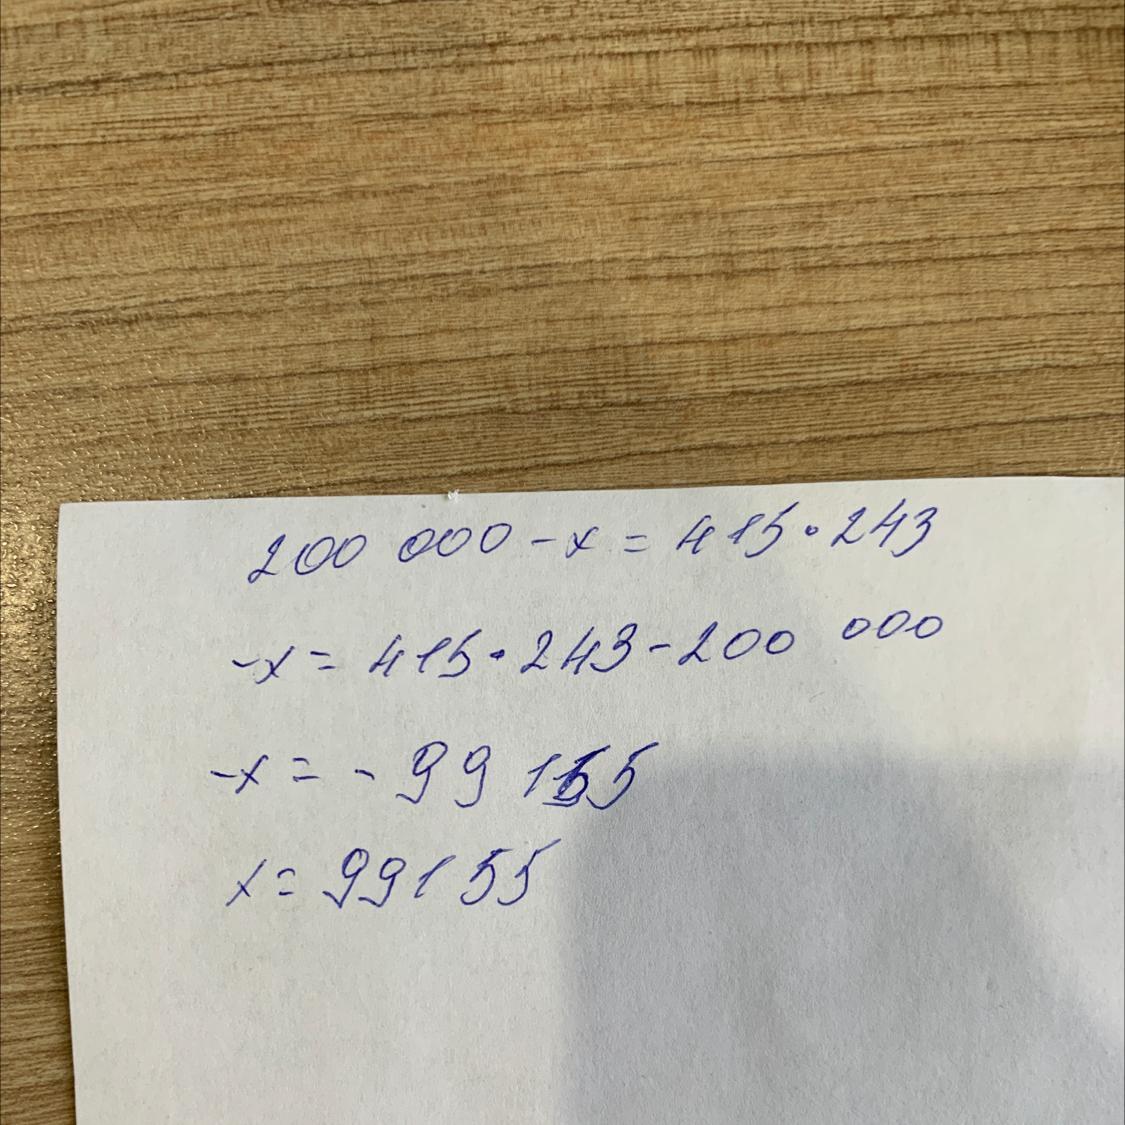 200 000 - x = 415 · 243
-x = 415 · 243 - 200 000
-x = - 99 155
x = 99155